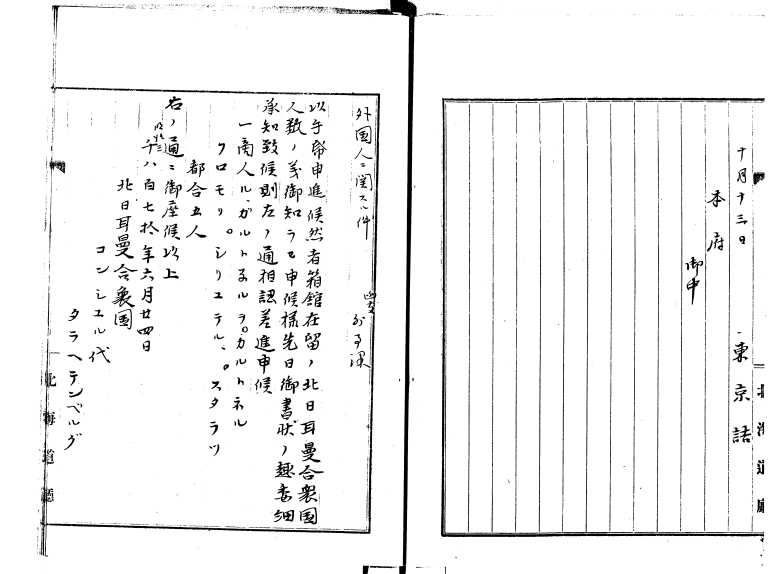 十月十三日
東京詰
本府
御中
北海道廳
外国人ニ関スル件
外事課
以手帋申進候然者箱館在留ノ北日耳曼合衆国
人数ノ義御知ラセ申候様先日御書状ノ趣委細
承知致候則左ノ通相認差進申候
一商人ル、ガルトネルヲ。ガルトネル
クロモリ。シリユテル、。スタラツ
都合五人
右ノ通ニ御座候以上
千八百七拾年六月廿四日
北日耳曼合衆国
コンシユル代
タラヘテンベルグ
北海道廳